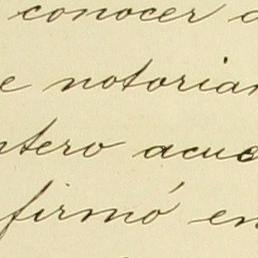 conocer
e notoria
ntero acue
firmó en